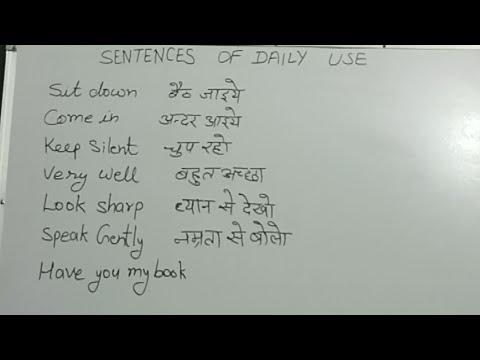 SENTENCES OF DAILY USE
Sit down बैठ जाइये
Come in अन्दर आइये
Keep Silent चुप रहो
Very well बहुत अच्छा
Look sharp ध्यान से देखो
Speak Gently नम्रता से बोलो
Have you my book